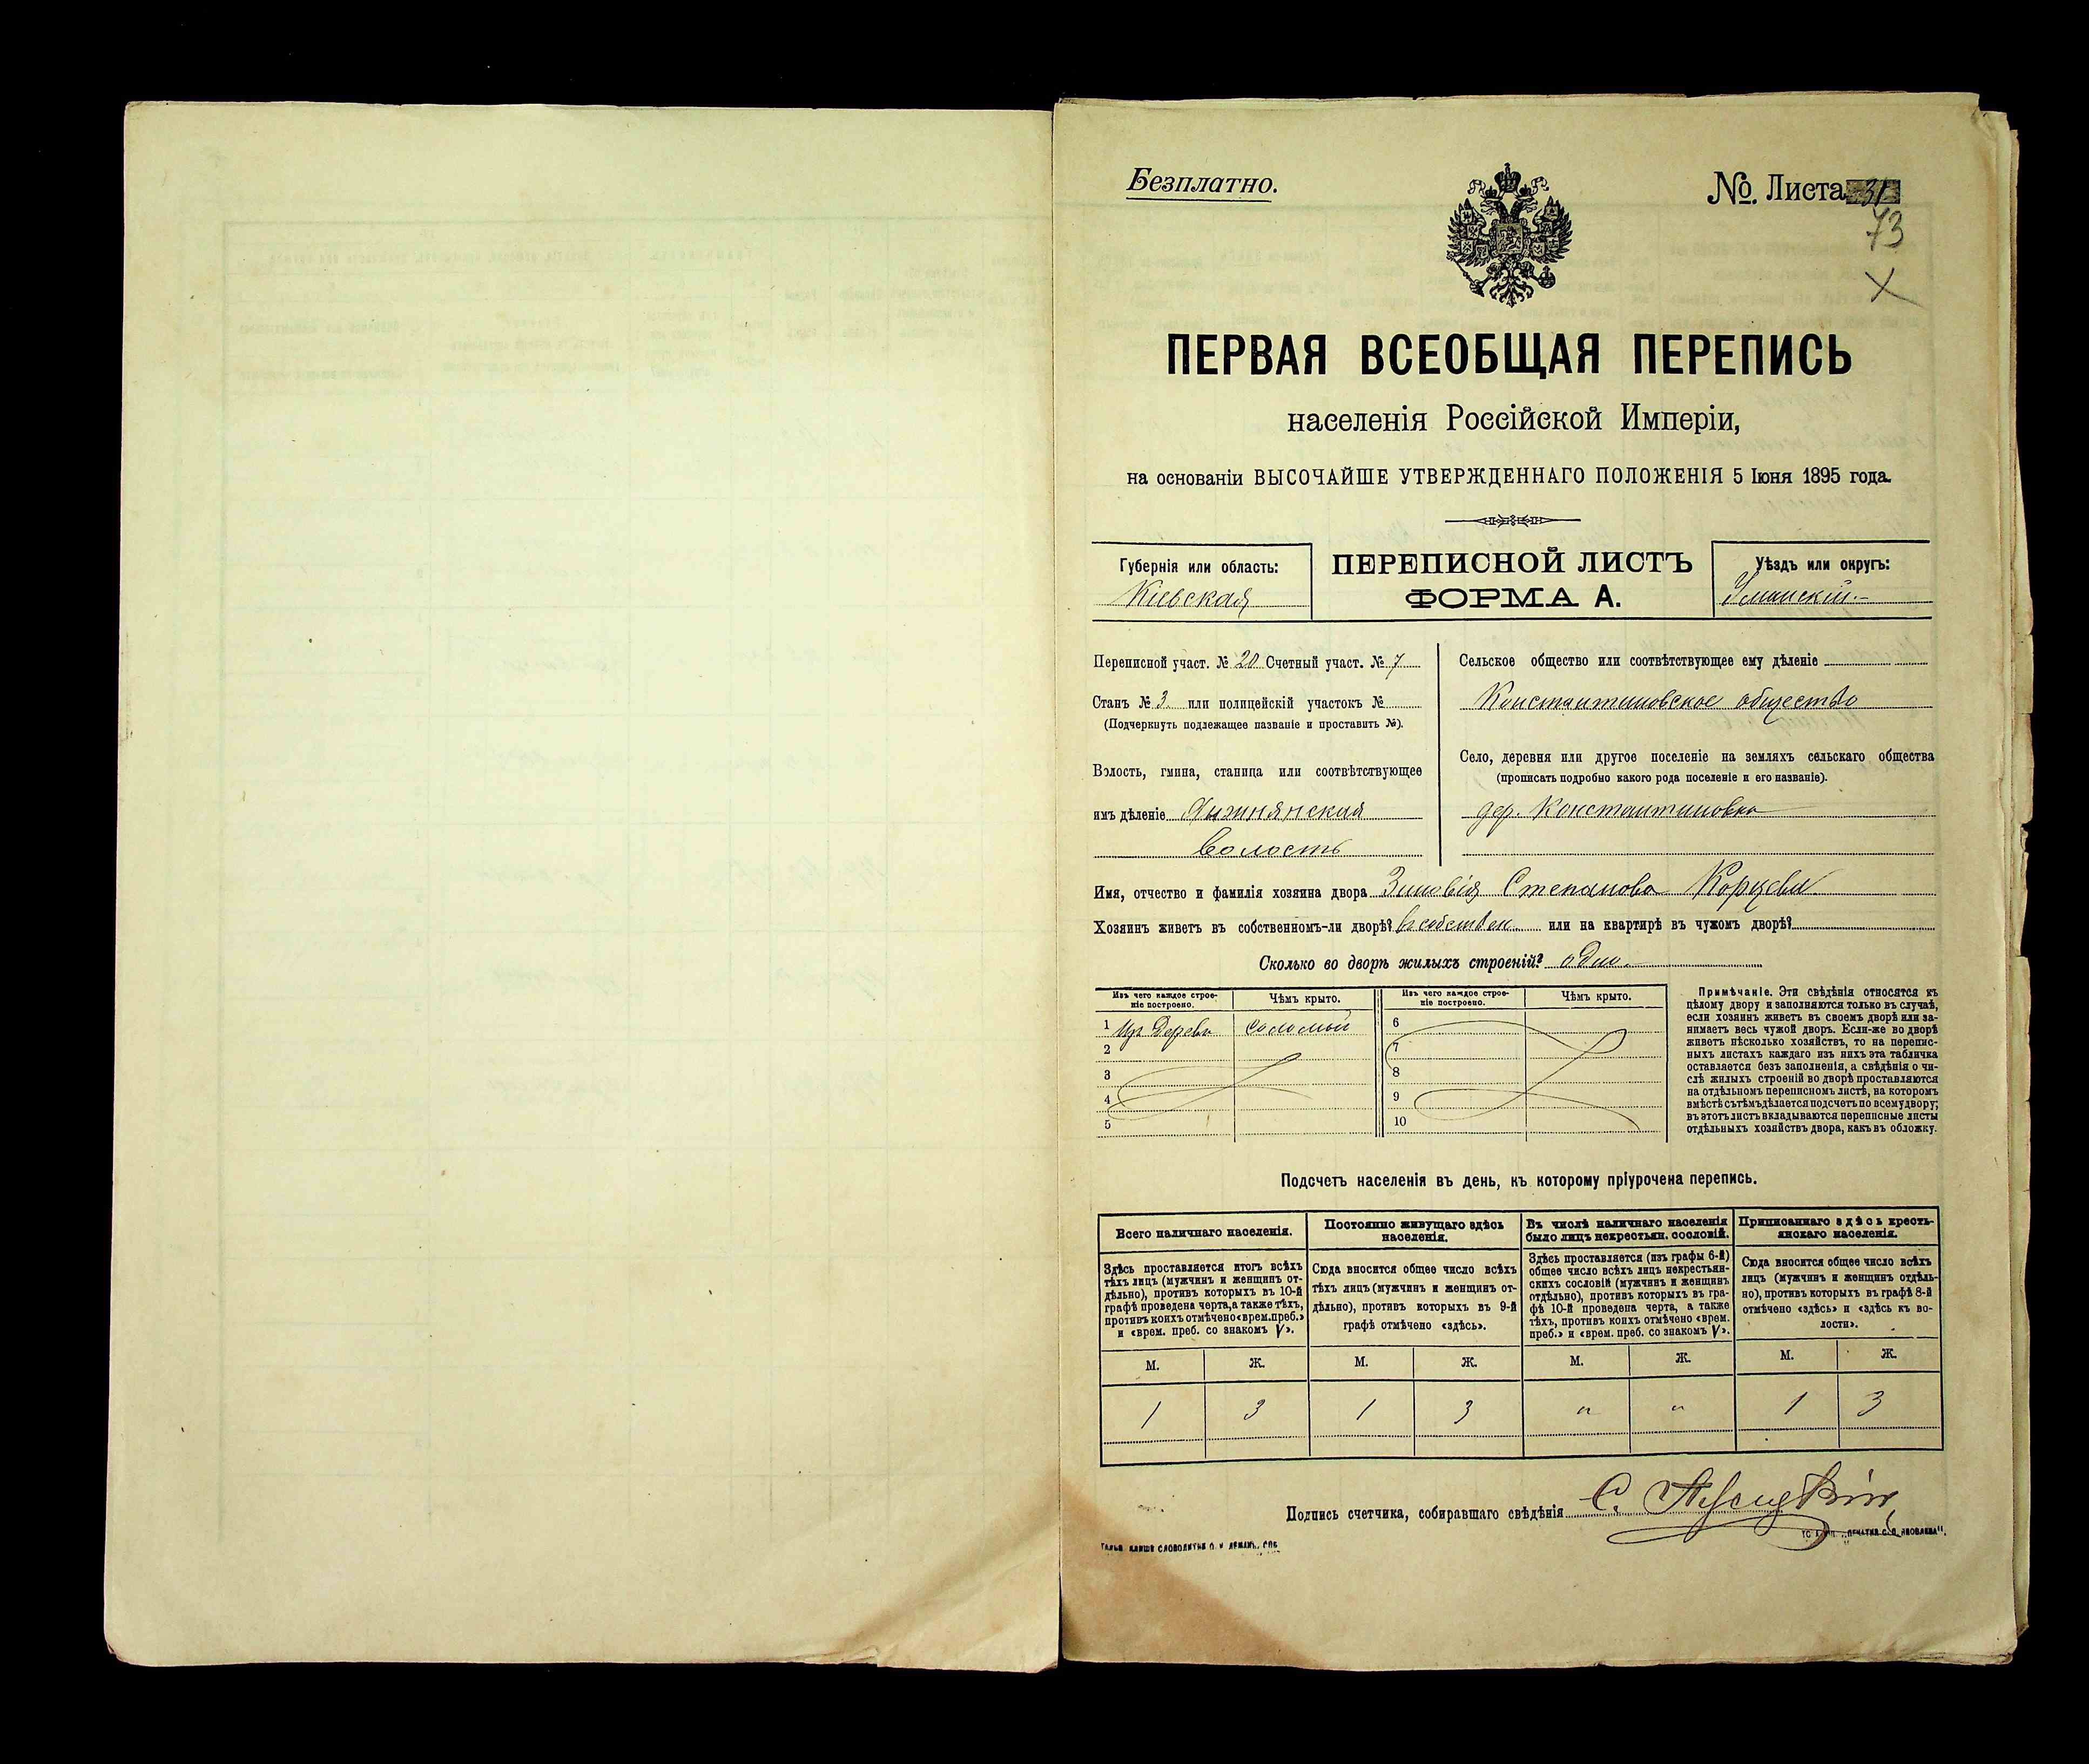 Безплатно.
№ Листа 31
73
ПЕРВАЯ ВСЕОБЩАЯ ПЕРЕПИСЬ
населенія Россійской Имперіи,
на основаніи ВЫСОЧАЙШЕ УТВЕРЖДЕННАГО ПОЛОЖЕНІЯ 5 Іюня 1895 года.
Губернія или область:
Кіевская
ПЕРЕПИСНОЙ ЛИСТЪ
ФОРМА А.
Уѣздъ или округъ:
Уманскій.
Переписной участ. № 20 Счетный участ. № 7
Станъ № 3 или полицейскій участокъ №
(Подчеркнуть подлежащее названіе и проставить №).
Волость, гмина, станица или соотвѣтствующее
имъ дѣленіе
Волость
Сельское общество или соотвѣтствующее ему дѣленіе
Константиновское общество
Село, деревня или другое поселеніе на земляхъ сельскаго общества
(прописать подробно какого рода поселеніе и его названіе).
дер. Константиновка
Имя, отчество и фамилія хозяина двора Зиновія Степанова
Хозяинъ живетъ въ собственномъ-ли дворѣ? въ собствен. или на квартирѣ въ чужомъ дворѣ?
Сколько во дворѣ жилыхъ строеній? одно.
Изъ чего каждое строе-
ніе построено.
Чѣмъ крыто.
Изъ чего каждое строе-
ніе построено.
Чѣмъ крыто.
1 Изъ дерева соломой
2
3
4
5
6
7
8
9
10
Примѣчаніе. Эти свѣдѣнія относятся къ
цѣлому двору и заполняются только въ случаѣ,
если хозяинъ живетъ въ своемъ дворѣ или за-
нимаетъ весь чужой дворъ. Если-же во дворѣ
живетъ нѣсколько хозяйствъ, то на перепис-
ныхъ листахъ каждаго изъ нихъ эта табличка
оставляется безъ заполненія, а свѣдѣнія о чи-
слѣ жилыхъ строеній во дворѣ проставляются
на отдѣльномъ переписномъ листѣ, на которомъ
вмѣстѣ съ тѣмъ дѣлается подсчетъ по всему двору;
въ этотъ листъ вкладываются переписные листы
отдѣльныхъ хозяйствъ двора, какъ въ обложку.
Подсчетъ населенія въ день, къ которому пріурочена перепись.
Всего наличнаго населенія.
Здѣсь проставляется итогъ всѣхъ
тѣхъ лицъ (мужчинъ и женщинъ от-
дѣльно), противъ которыхъ въ 10-й
графѣ проведена черта, а также тѣхъ,
противъ коихъ отмѣчено «врем. преб.»
и «врем. преб. со знакомъ V».
М. Ж.
1 3
Постоянно живущаго здѣсь
населенія.
Сюда вносится общее число всѣхъ
тѣхъ лицъ (мужчинъ и женщинъ от-
дѣльно), противъ которыхъ въ 9-й
графѣ отмѣчено «здѣсь».
М. Ж.
1 3
Въ числѣ наличнаго населенія
было лицъ некрестьян. сословій.
Здѣсь проставляется (изъ графы 6-й)
общее число всѣхъ лицъ некрестьян-
скихъ сословій (мужчинъ и женщинъ
отдѣльно), противъ которыхъ въ гра-
фѣ 10-й проведена черта, а также
тѣхъ, противъ коихъ отмѣчено «врем.
преб.» и «врем. преб. со знакомъ V».
М. Ж.
" "
Приписаннаго здѣсь кресть-
янскаго населенія.
Сюда вносится общее число всѣхъ
лицъ (мужчинъ и женщинъ отдѣль-
но), противъ которыхъ въ графѣ 8-й
отмѣчено «здѣсь» и «здѣсь къ во-
лости».
М. Ж.
1 3
Подпись счетчика, собиравшаго свѣдѣнія С.